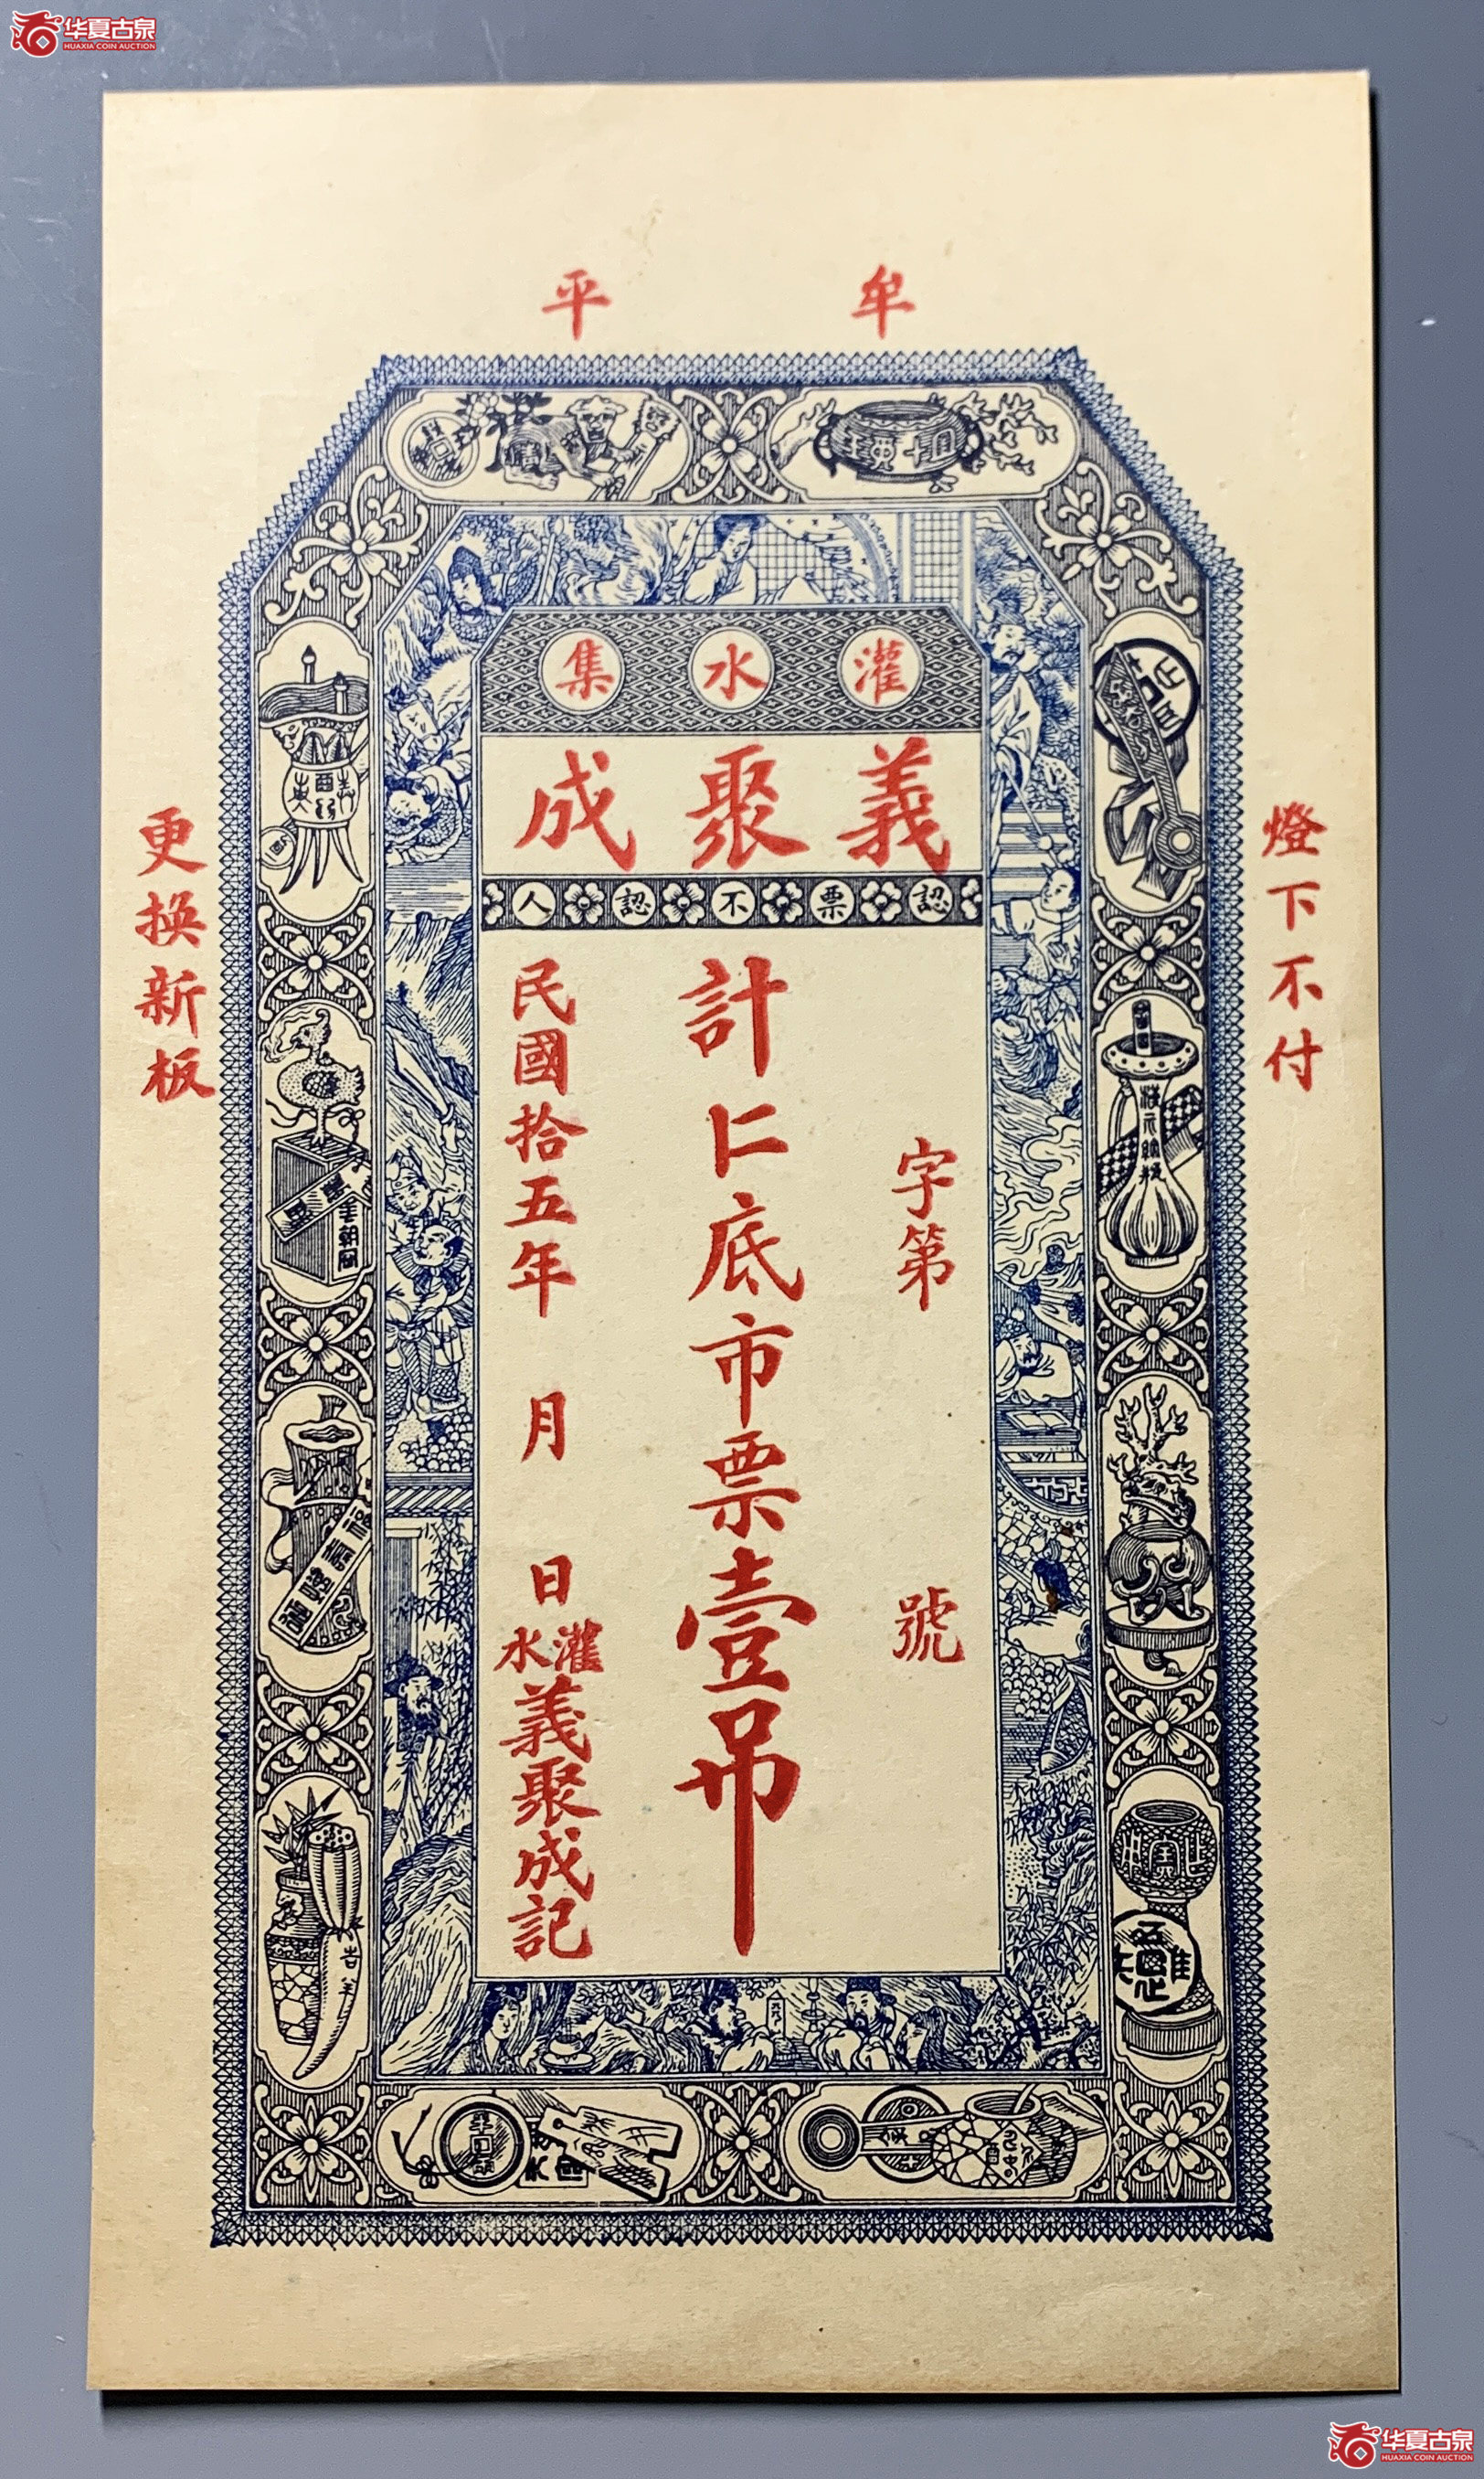 华夏古泉
HUAXIA COIN AUCTION
牟平
灌水集
義聚成
認票不認人
燈下不付
字第 號
計仁底市票壹吊
民國拾五年 月 日灌水義聚成記
更換新板
华夏古泉
HUAXIA COIN AUCTION